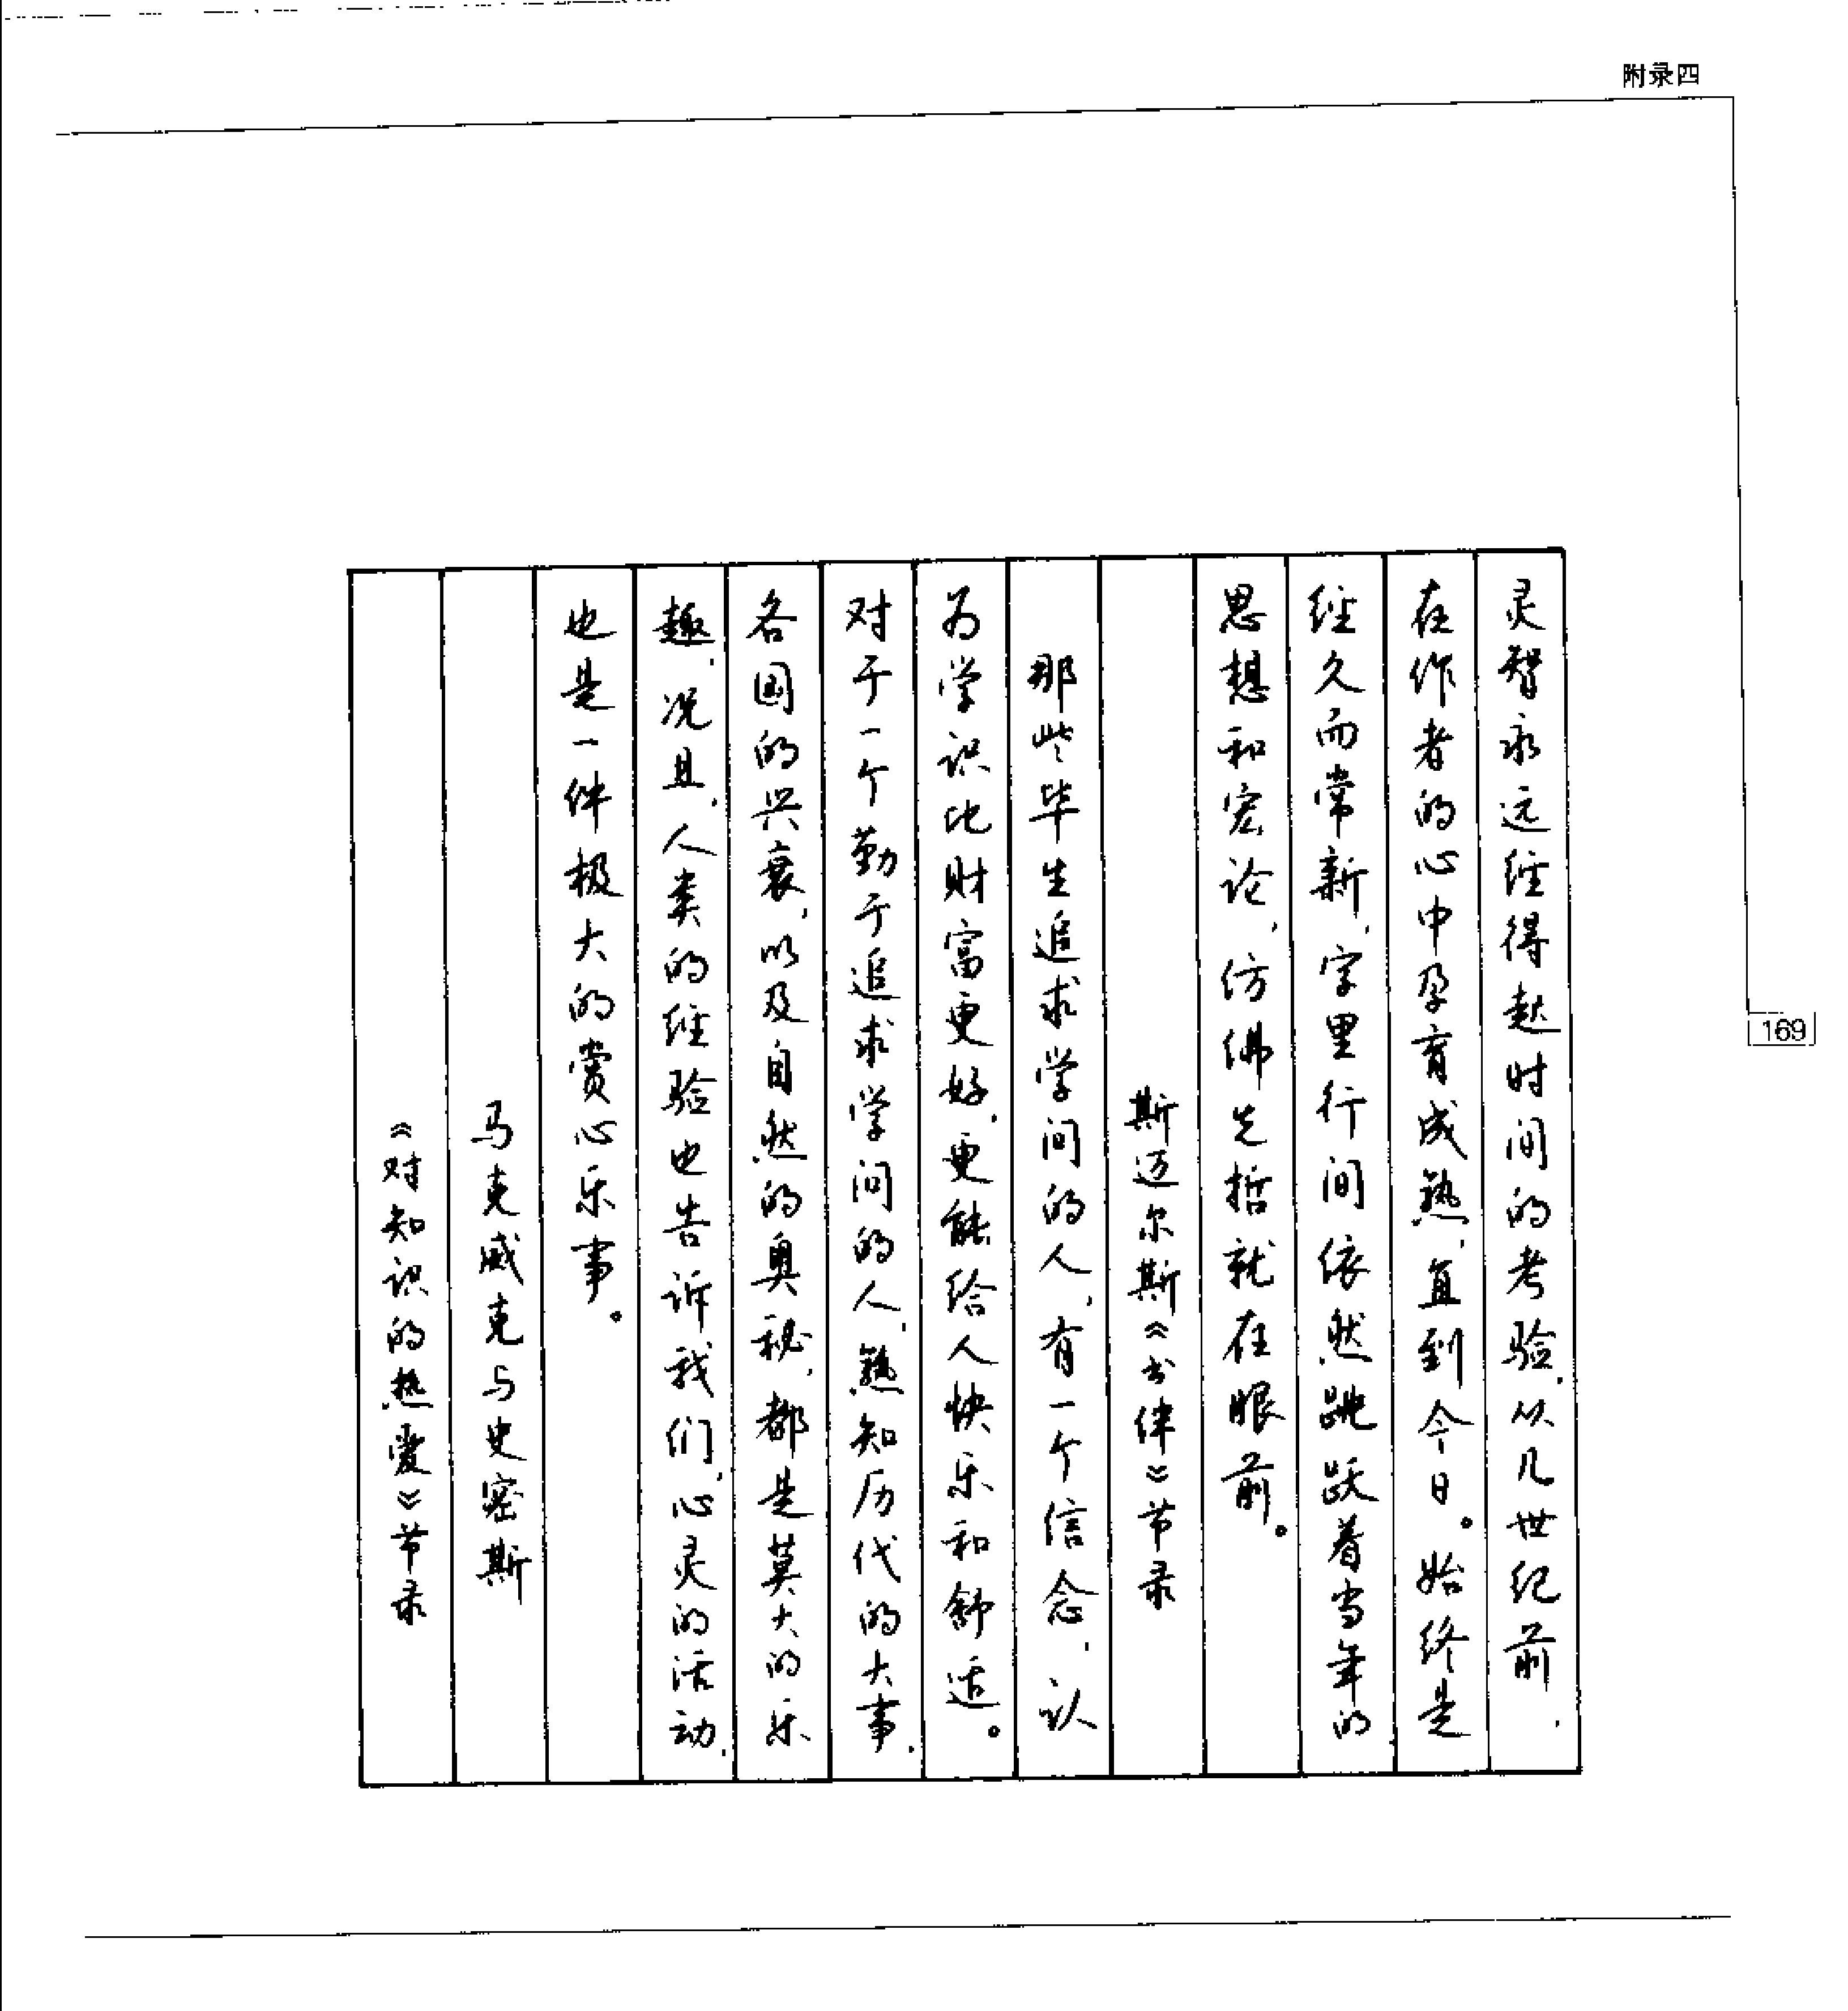 附录四
灵智永远经得起时间的考验,从几世纪前,
在作者的心中孕育成熟,直到今日。始终是
经久而常新,字里行间依然跳跃着当年的
思想和宏论,仿佛先哲就在眼前。
斯迈尔斯《书伴》节录
那些毕生追求学问的人,有一个信念,认
为学识比财富更好,更能给人快乐和舒适。
对于一个勤于追求学问的人,熟知历代的大事,
各国的兴衰,以及自然的奥秘,都是莫大的乐
趣,况且,人类的经验也告诉我们,心灵的活动,
也是一件极大的赏心乐事。
马克威克与史密斯
《对知识的热爱》节录
169